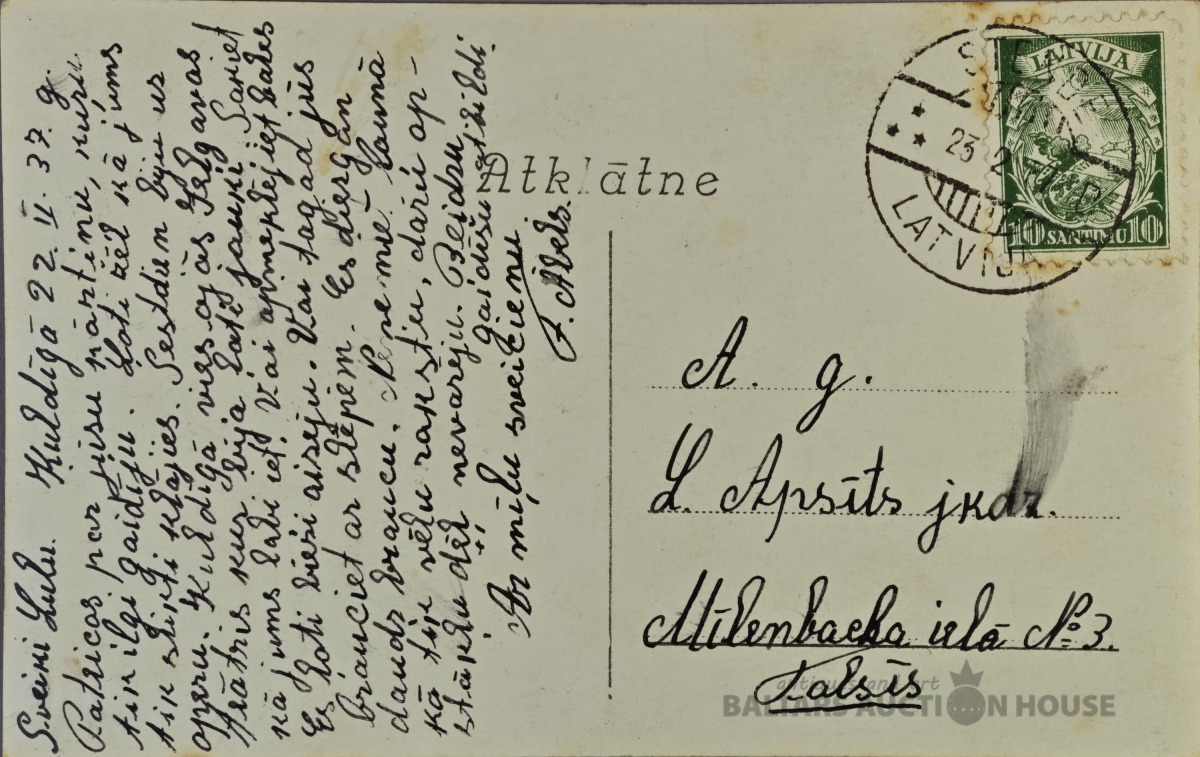 Sveiki Lulu. Kuldīgā 22. II. 37. g.
Pateicos par jūsu kārtiņu, kuru
tik ilgi gaidīju. Ļoti žēl kā jums
tik slikti klājies. Sestdien biju uz
operu. Kuldīgā viesojās Jelgavas
Teātris kur bija ļoti jauki. Sakiet
kā jums labi iet? Vai apmeklējiet balles
Es ļoti bieži aiseju. Vai tagad jūs
brauciet ar slēpēm. Es diezgan
daudz braucu. Neņemiet ļaunā
kā tik vēlu rakstu, darīi ap-
stākļu dēļ nevarēju. Beidzu
gaidīšu atbildi.
Ar mīļu sveicienu
F. Alvks.
Atklātne
LATVIJA
10 SANTIMU 10
23 2
LATVIJA
A. g.
L. Apsīts jkdz.
Mīlenbacha ielā № 3.
Talsīs
BALTARS AUCTION HOUSE